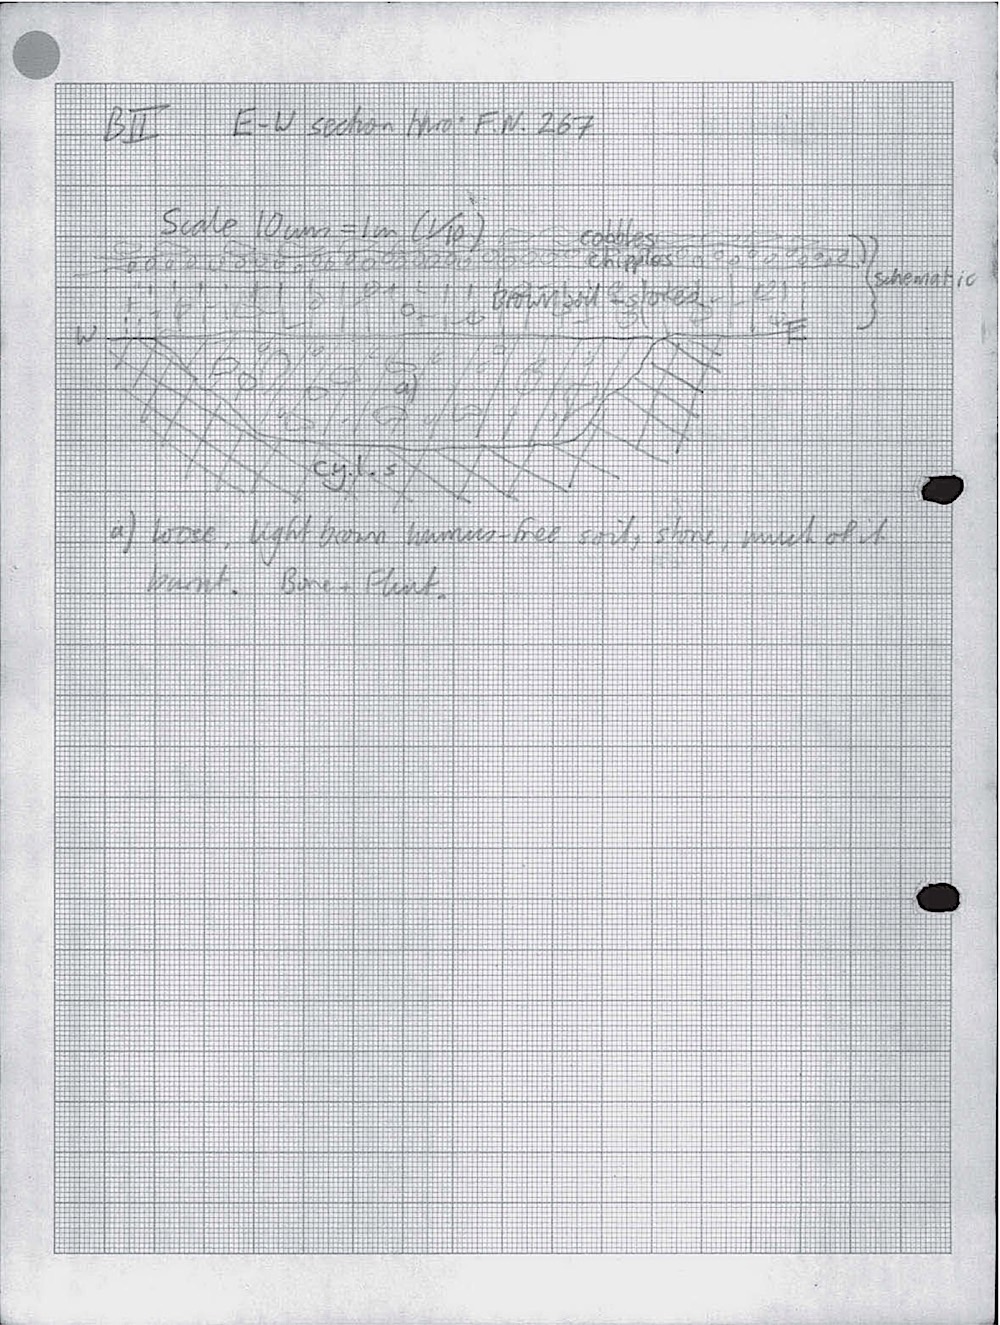 BII E-W section thro' F.N. 267
Scale 10cms = 1m (1/10)
cobbles
chipples
schematic
Brown soil + stones
W E
a)
c.y.l.s
a) Loose, light brown humus-free soil, stone, much of it
burnt. Bone + Flint.